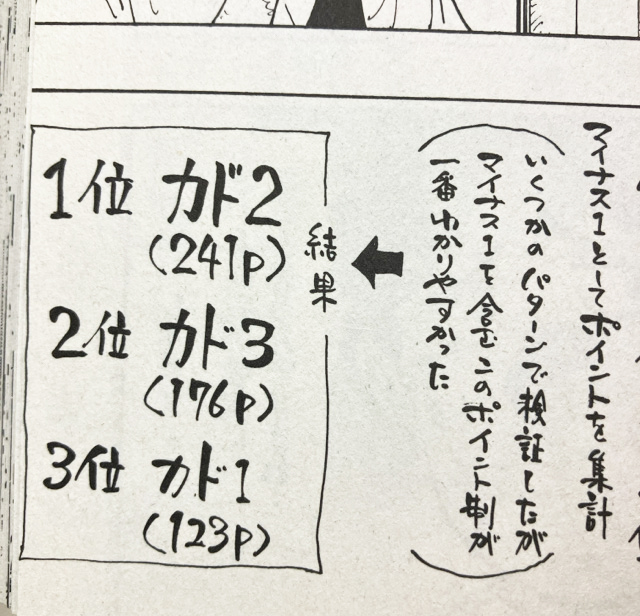 マイナス1としてポイントを集計
(いくつかのパターンで検証したが
マイナス1を含むこのポイント制が
一番わかりやすかった)
結果
1位 カド2
(241p)
2位 カド3
(176p)
3位 カド1
(123p)